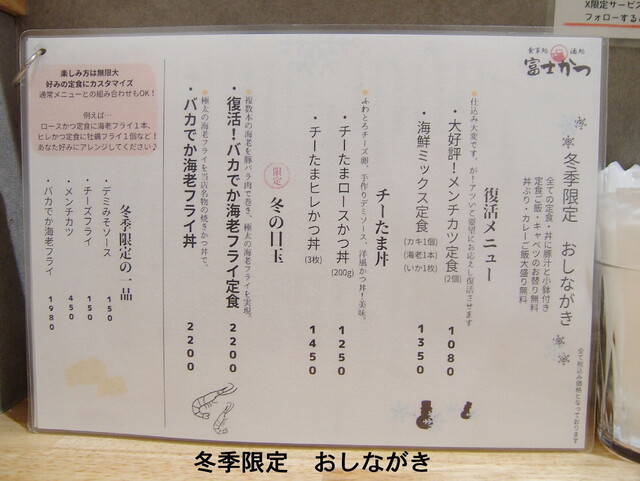 X限定サービス
フォローする
食事処 酒処
富士かつ
冬季限定 おしながき
全ての定食・丼に豚汁と小鉢付き
定食ご飯・キャベツのお替り無料
丼ぶり・カレーご飯大盛り無料
全て税込み価格となっております
復活メニュー
仕込み大変です。が！アツいご要望にお応えし復活させます
・大好評！メンチカツ定食(2個) 1080
・海鮮ミックス定食(カキ1個)(海老1本)(いか1枚) 1350
チーたま丼
ふわとろチーズ卵、手作りデミソース、洋風かつ丼！美味。
・チーたまロースかつ丼(200g) 1250
・チーたまヒレかつ丼(3枚) 1450
限定
冬の目玉
複数本の海老を豚バラ肉で巻き、極太の海老フライを実現。
・復活！バカでか海老フライ定食 2200
極太の海老フライを当店名物の焼きかつ丼で。
・バカでか海老フライ丼 2200
楽しみ方は無限大
好みの定食にカスタマイズ
通常メニューとの組み合わせもOK！
例えば…
ロースかつ定食に海老フライ1本、
ヒレかつ定食に牡蠣フライ1個など！
あなた好みにアレンジしてください♪
冬季限定の一品
・デミみそソース 150
・チーズフライ 150
・メンチカツ 450
・バカでか海老フライ 1980
冬季限定 おしながき